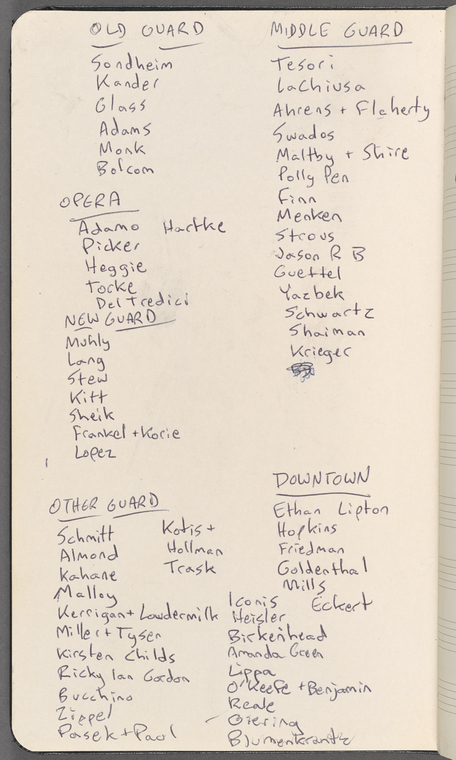 OLD GUARD
Sondheim
Kander
Glass
Adams
Monk
Bolcom
OPERA
Adamo Hartke
Picker
Heggie
Torke
Del Tredici
NEW GUARD
Muhly
Lang
Stew
Kitt
Sheik
Frankel + Korie
Lopez
MIDDLE GUARD
Tesori
LaChiusa
Ahrens + Flaherty
Swados
Maltby + Shire
Polly Pen
Finn
Menken
Strous
Jason R B
Guettel
Yazbek
Schwartz
Shaiman
Krieger
OTHER GUARD
Schmitt
Almond
Kahane
Malloy
Kerrigan + Lowdermilk
Miller + Tysen
Kirsten Childs
Ricky Ian Gordon
Bucchino
Zippel
Pasek + Paul
Kotis +
Hollman
Trask
DOWNTOWN
Ethan Lipton
Hopkins
Friedman
Goldenthal
Mills
Eckert
Iconis
Heisler
Birkenhead
Amanda Green
Lippa
O'Keefe + Benjamin
Reale
Giering
Blumenkrantz